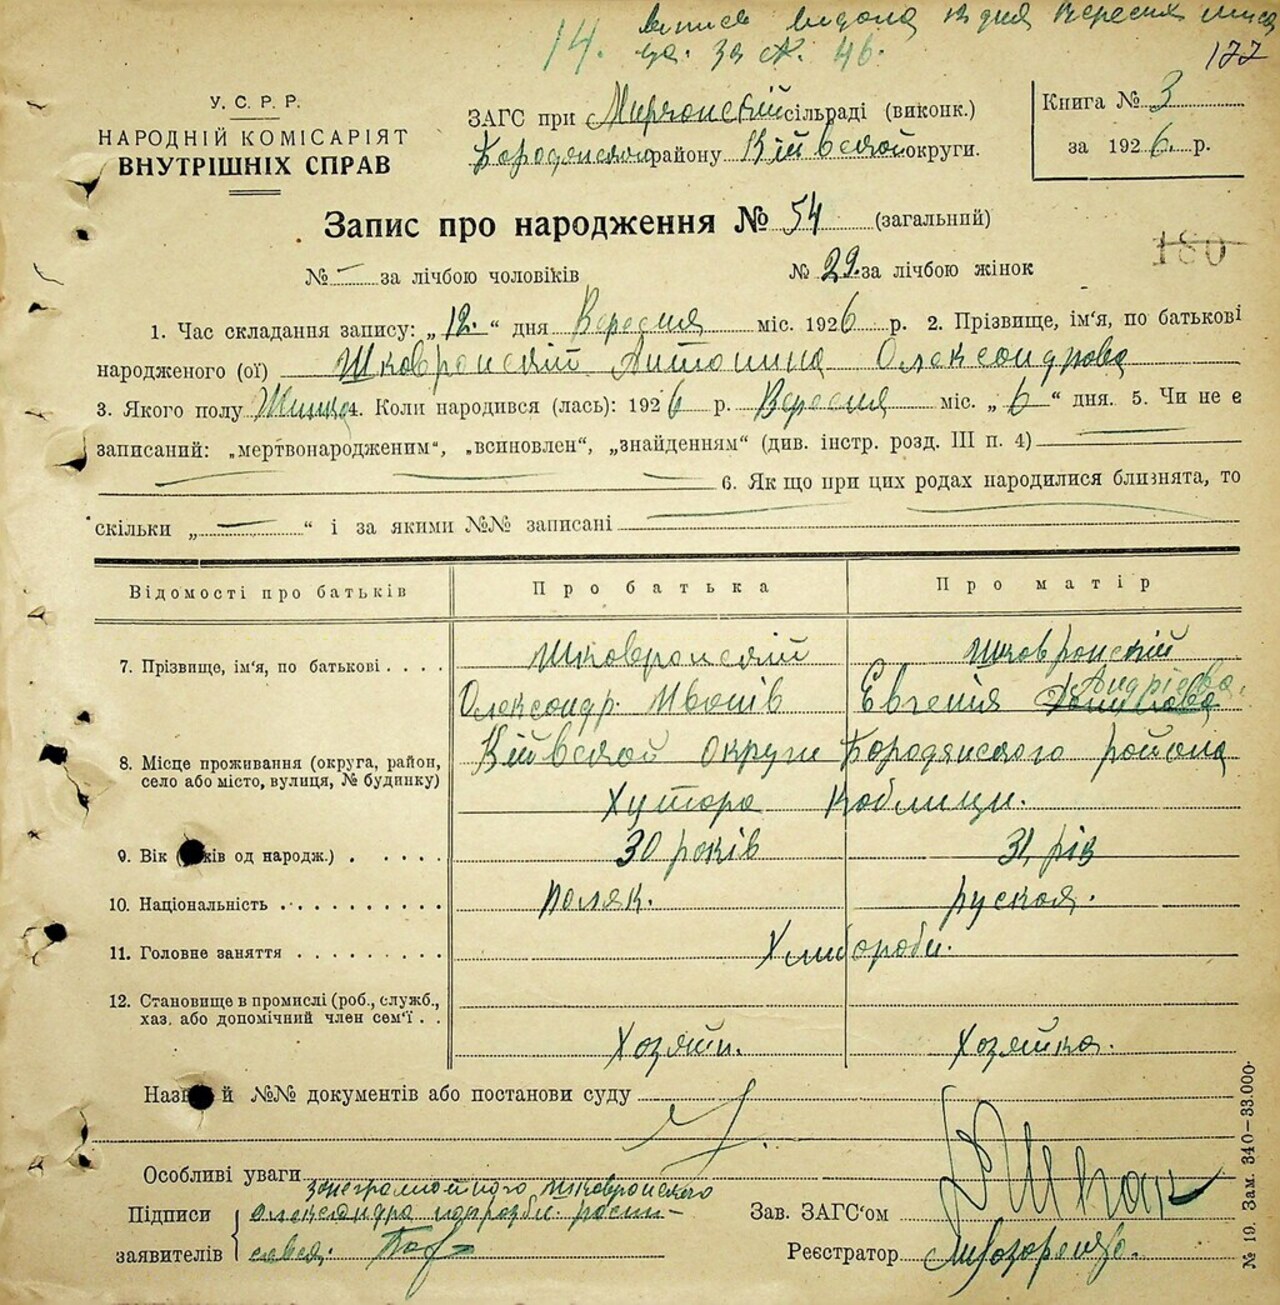 14. випись видана 12 дня Вересня міся
ця. за №. 46.
177
У. С. Р. Р.
НАРОДНІЙ КОМІСАРІЯТ
ВНУТРІШНІХ СПРАВ
ЗАГС при Мирчонскій сільраді (виконк.)
Бородянского району Київской округи.
Книга № 3
за 1926. р.
Запис про народження № 54 (загальний)
№ — за лічбою чоловіків № 29. за лічбою жінок
180
1. Час складання запису: „12.“ дня Вересня міс. 1926 р. 2. Прізвище, ім'я, по батькові
народженого (ої) Шковронскій Антонина Олександрова
3. Якого полу Жинка 4. Коли народився (лась): 1926 р. Вересня міс. „6“ дня. 5. Чи не є
записаний: „мертвонародженим“, „всиновлен“, „знайденням“ (див. інстр. розд. III п. 4) —
— — — 6. Як що при цих родах народилися близнята, то
скільки „—“ і за якими №№ записані — —
Відомості про батьків Про батька Про матір
7. Прізвище, ім'я, по батькові . . . . Шковронскій Шковронскій
Андрієва
Олександр. Иванів Евгенія
8. Місце проживання (округа, район,
село або місто, вулиця, № будинку)
Київской округи Бородянского района
Хутора Коблици.
9. Вік (років од народж.) . . . . . 30 років 31, рів
10. Національність . . . . . . . . . поляк. руская.
11. Головне заняття . . . . . . . . . Хлибороби.
12. Становище в промислі (роб., служб.,
хаз. або допомічний член сем'ї . .
Хозяїн. Хозяйка.
Назви й №№ документів або постанови суду
Особливі уваги
Підписи
заявителів
за неграмотного Шковронского
Олександра напрозби росписався.
Зав. ЗАГС'ом
Реєстратор
№ 19. Зам. 340—33.000.